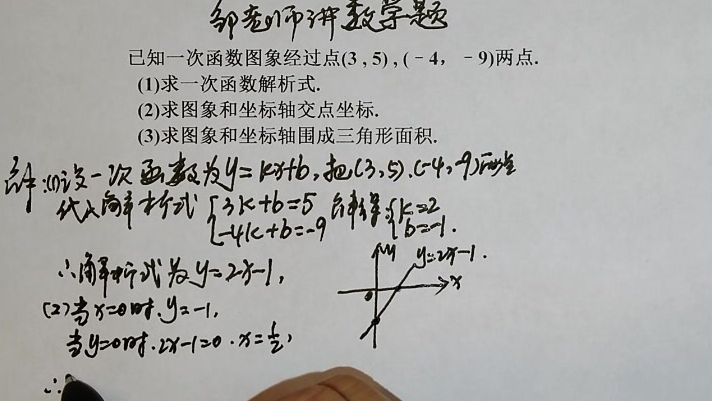 邹老师讲数学题
已知一次函数图象经过点(3,5),(-4,-9)两点.
(1)求一次函数解析式.
(2)求图象和坐标轴交点坐标.
(3)求图象和坐标轴围成三角形面积.
解:(1)设一次函数为y=kx+b,把(3,5).(-4,-9)两点
代入解析式 {3k+b=5 解得:{k=2
-4k+b=-9 b=-1.
∴解析式为y=2x-1,
(2)当x=0时.y=-1,
当y=0时.2x-1=0.x=1/2,
∴
y
y=2x-1.
o
x